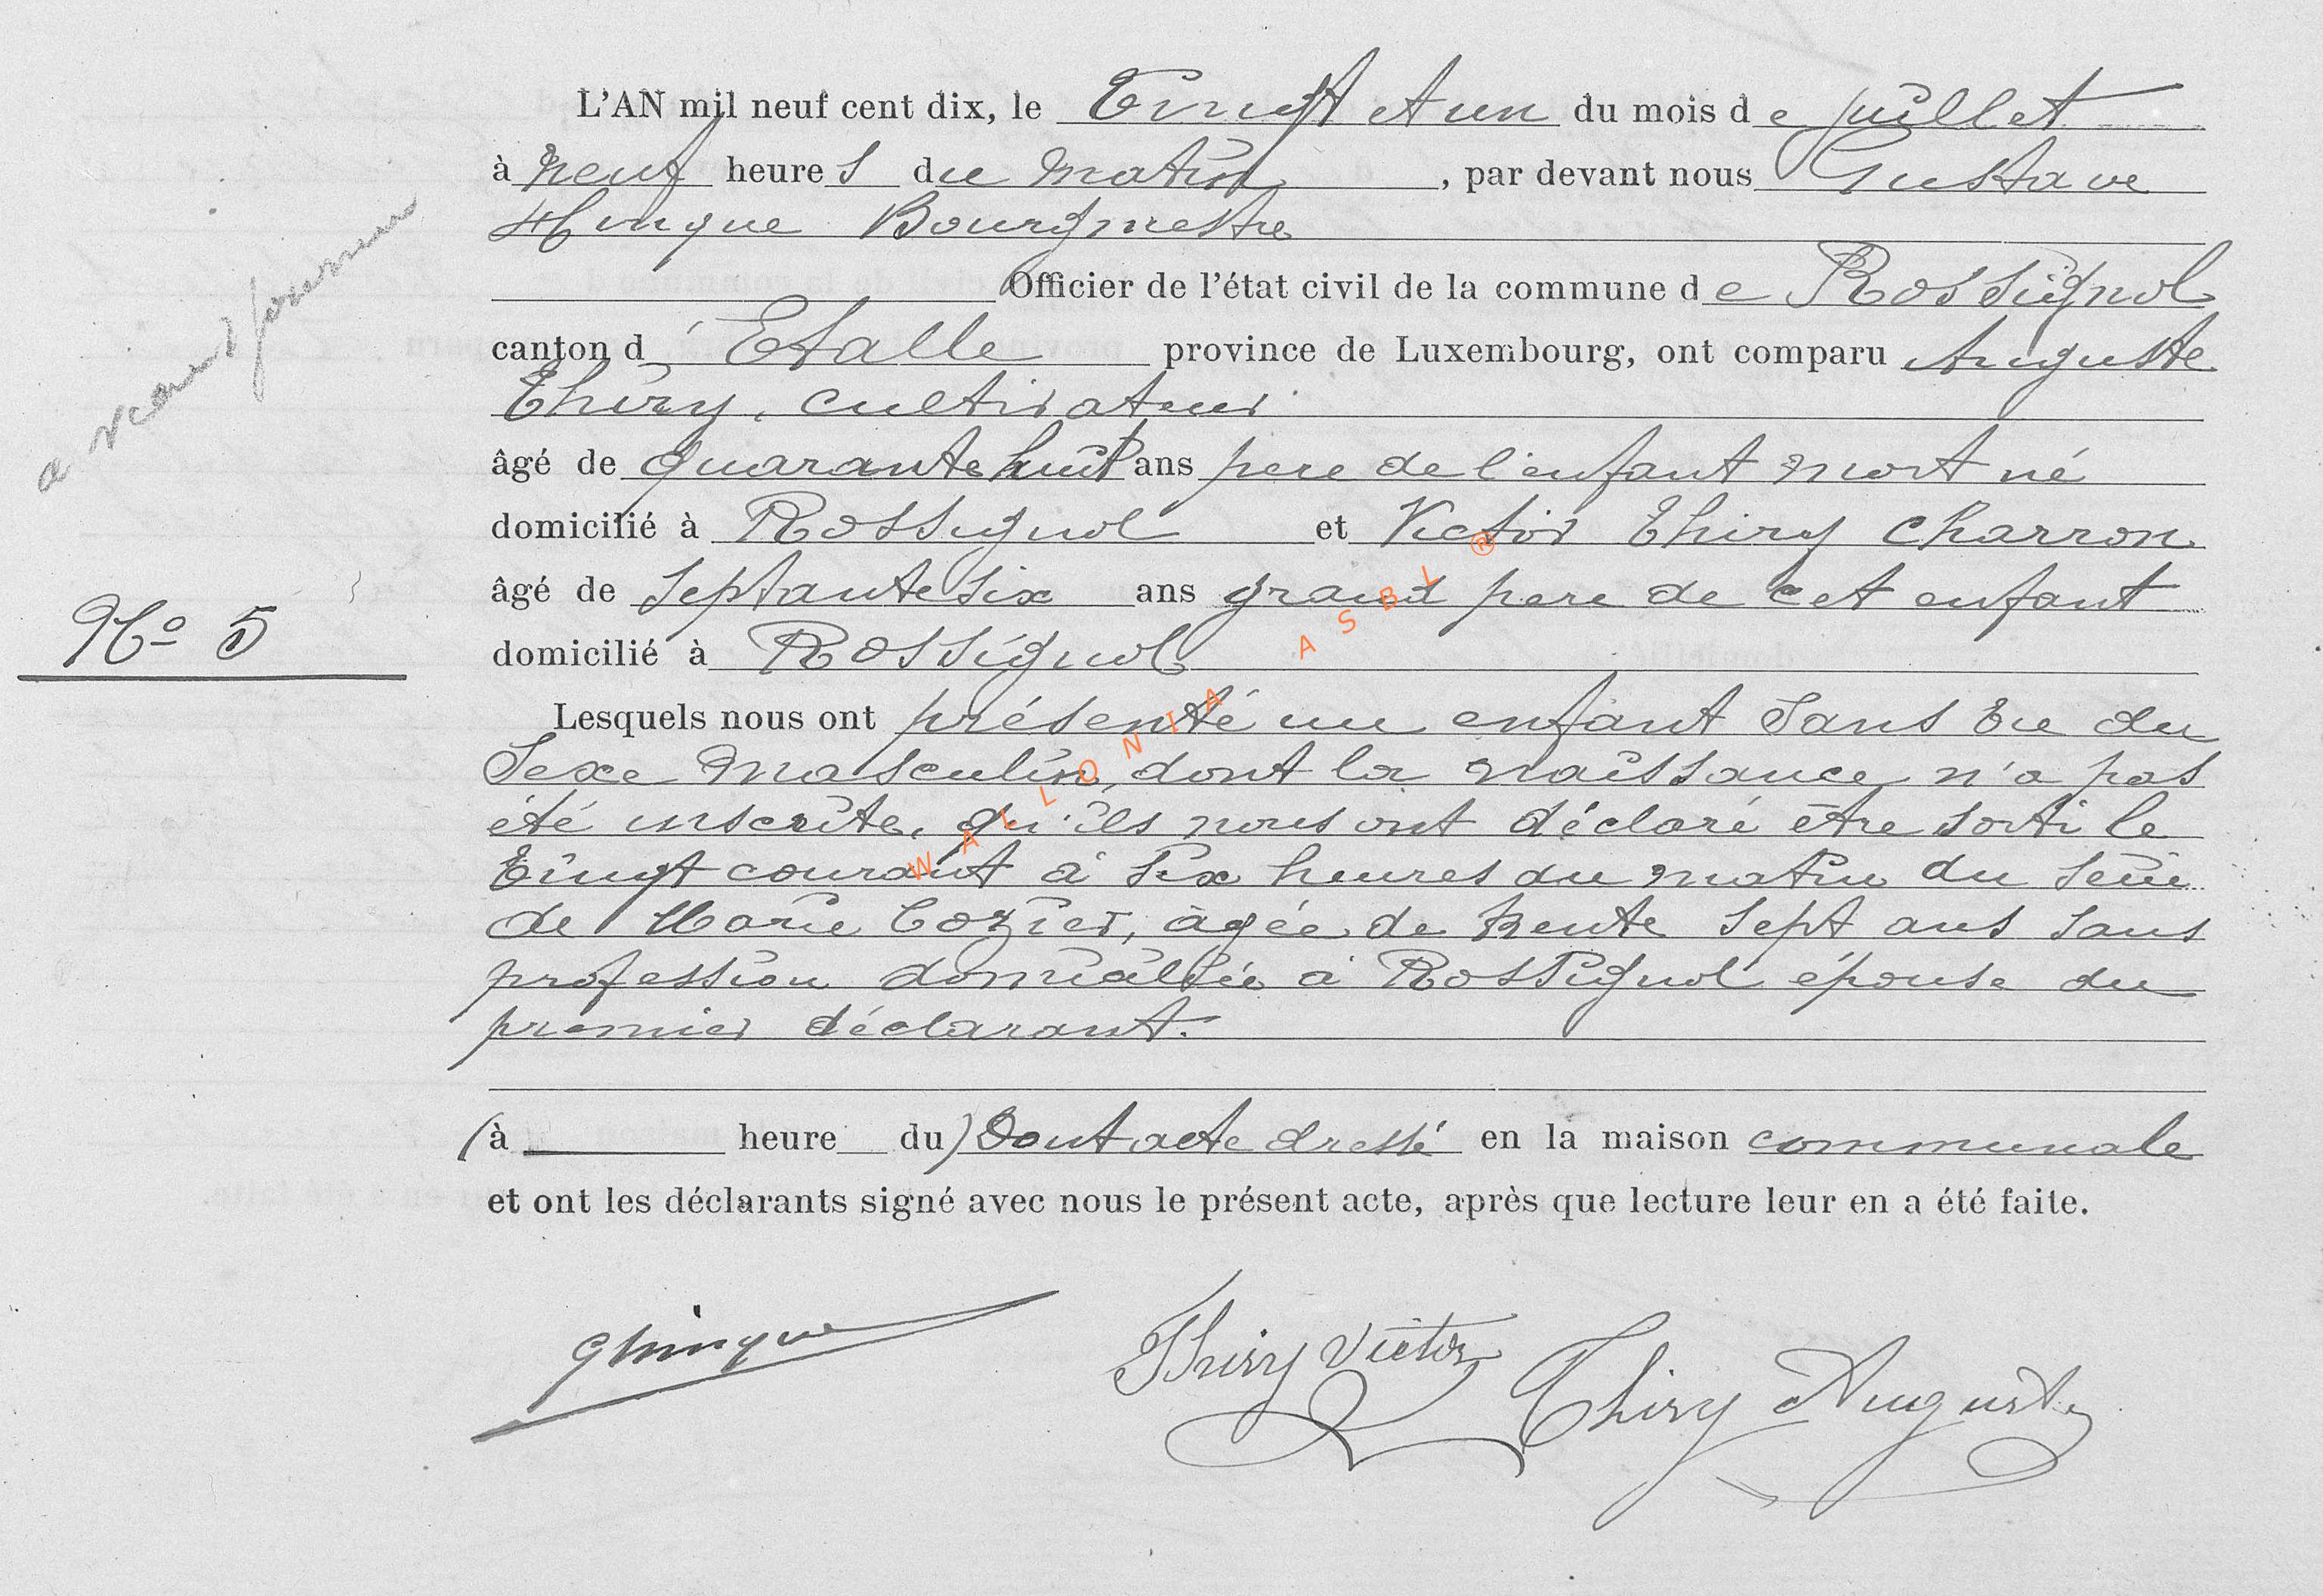 L'AN mil neuf cent dix, le Vingt et un du mois de juillet
à neuf heures du matin, par devant nous Gustave
Hinque Bourgmestre
Officier de l'état civil de la commune de Rossignol
canton d'Etalle province de Luxembourg, ont comparu Auguste
Thiry, cultivateur
âgé de quarante huit ans père de l'enfant mort né
domicilié à Rossignol et Victor Thiry charron
âgé de septante six ans grand père de cet enfant
N° 5
domicilié à Rossignol
Lesquels nous ont présenté un enfant sans vie du
sexe masculin, dont la naissance n'a pas
été inscrite, qu'ils nous ont déclaré être sorti le
Vingt courant à six heures du matin du sein
de Marie Cozier, âgée de trente sept ans sans
profession domiciliée à Rossignol épouse du
premier déclarant.
(à heure du) Dont acte dressé en la maison communale
et ont les déclarants signé avec nous le présent acte, après que lecture leur en a été faite.
GHinque
Thiry Victor Thiry Auguste
WALLONIA ASBL ®